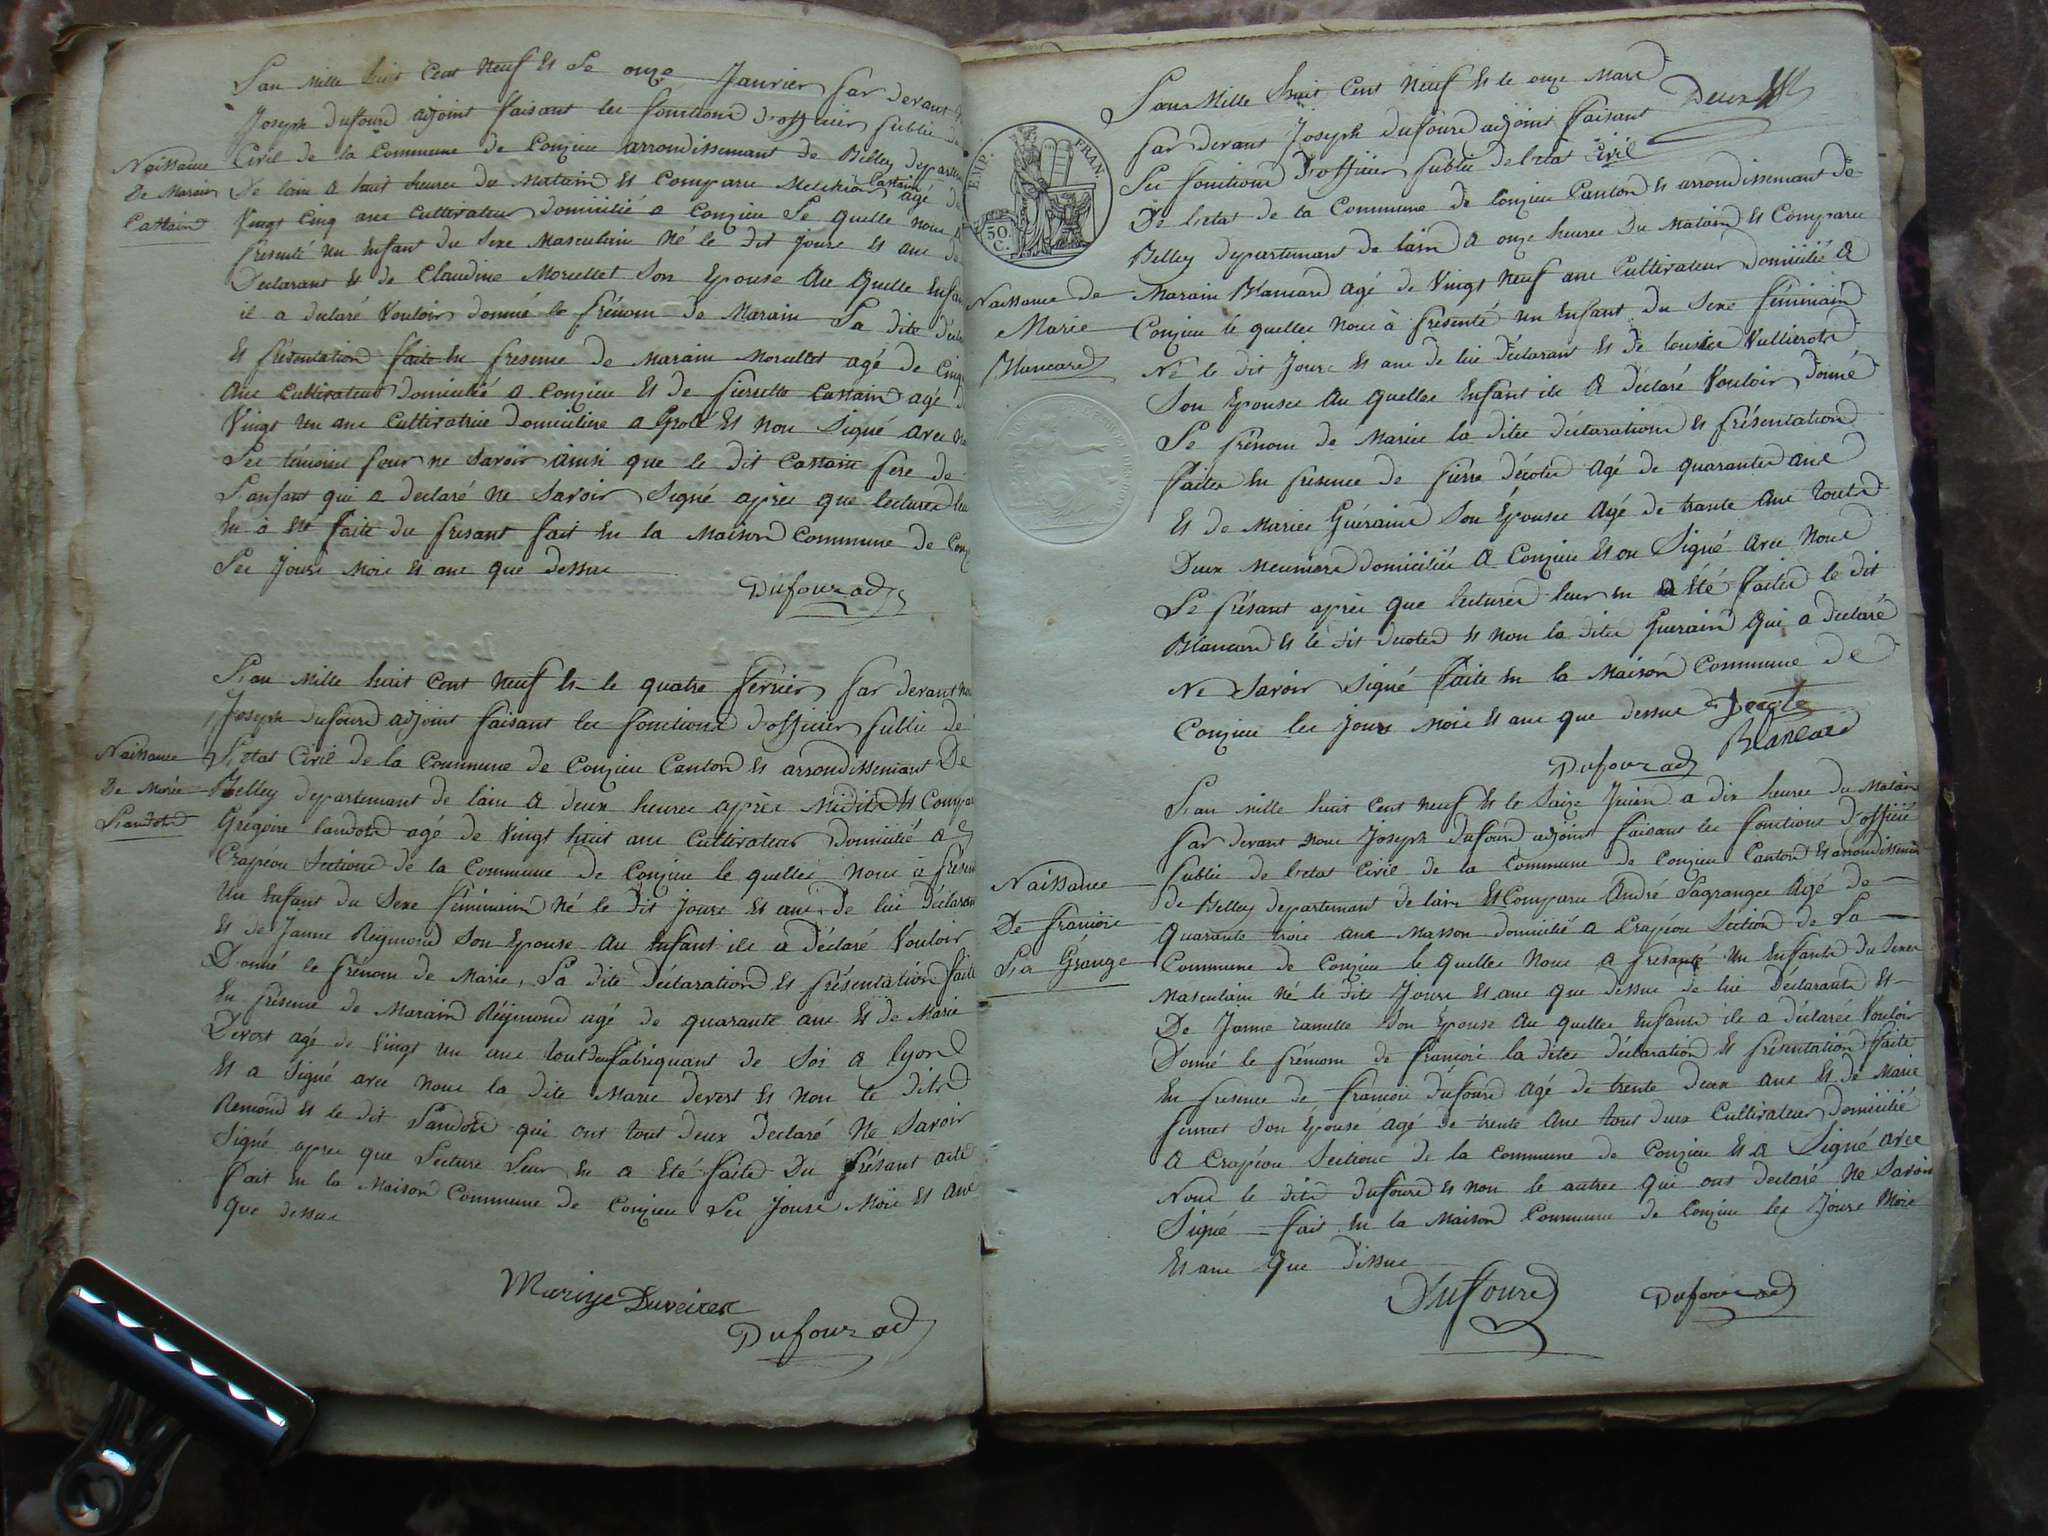 L'an Mille huit Cent Neuf Et Le onze Janvier par devant
Joseph Dufourd adjoint faisant les fonctions d'officier public de
Civil de la Commune de Conzieu arrondissement de Belley departem
De lain a huit heures du Matain Et Comparu Melchior Cattain agé de
Vingt Cinq ans Cultivateur domicilié a Conzieu Le quelle nous a
presenté un Enfant du Sexe Masculain Né le dit jours Et ans de
Declarant Et de Claudine Morellet Son Epouse Au quelle Enfan
il a declaré Vouloir donné le prénom de Marain La dite décla
Et présentation faite En presence de Marain Morellet agé de Cinq
Ans Cultivateur domicilié a Conzieu Et de pierrette Cattain agé d
Vingt un ans Cultivatrice domiciliere a Groté Et non Signé avec
Les témoins pour ne Savoir ainsi que le dit Cattain pere de
L'anfant qui a declaré Ne Savoir Signé après que lectures leu
En à été faite du presant fait En la Maison Commune de Conz
Les Jours Mois Et ans que dessus
Dufour adj
Naissance
De Marain
Cattain
L'an Mille huit Cent Neuf Et le quatre fevrier par devant nou
Joseph Dufourd adjoint faisant les fonctions d'officier public de
L'etat Civil de la Commune de Conzieu Canton Et arrondissement De
Belley departemant de lain a deux heures après Midit Et Compar
Gregoire landot agé de Vingt huit ans Cultivateur Domicilié a
Crapéou Section de la Commune de Conzieu le quelles Nous à presen
Un Enfant du Sexe féminain Né le Dit jours Et ans de lui déclarant
Et de Janne Reymond Son Epouse Au Enfant ile a déclaré Vouloir
Donné le prénom de Marie, La dite déclaration Et présentation faite
En presence de Marain Reymond agé de quarante ans Et de Marie
Devert agé de Vingt un ans tout deux fabriquant de Soi a lyon
Et a Signé avec nous la dite Marie devert Et non le dit
Remond Et le dit Landot qui ont tout deux declaré Ne Savoir
Signé apres que Lecture Leur En a été faite Du présant acte
fait En la Maison Commune de Conzieu Les Jours Mois Et ans
que dessus
Naissance
De Marie
Landot
Mariye
Dufour adj
EMP. FRAN.
50. C.
L'an Mille huit Cent Neuf Et le onze Mars
par devant Joseph Dufourd adjoint faisant
Les fonctions D'officier public de l'etat Civil
De l'etat de la Commune de Conzieu Canton Et arrondissement de
Belley departemant de lain a onze heures Du Matain Et Comparu
Marain Blancard agé de Vingt Neuf ans Cultivateur domicilié a
Conzieu le quelles Nous à presenté un Enfant du Sexe féminain
Né le dit Jours Et ans de lui déclarant Et de louise Vullierot
Son Epouse Au quelles Enfant ile a Déclaré Vouloir donné
Le prénom de Maries la dites déclaration Et présentation
faites En presence de pierre décote Agé de quarantes ans
Et de Maries Guéraind Son Epouses Agé de trante Ans touts
Deux Meuniers domiciliés a Conzieu Et on Signé avec Nous
Le présant après que lectures leur en a été faites le dit
Blancard Et le dit decote Et non la dites Guerain Qui a declaré
Ne Savoir Signé faite En la Maison Commune de
Conzieu les Jours Mois Et ans que dessus Decote
Blancard
Dufour adj
Naissance de
Marie
Blancard
L'an mille huit Cent Neuf Et le Saize Juin a dix heures du Matain
par devant Nous Joseph Dufourd adjoint faisant les fonctions D'officié
public de l'etat Civil de la Commune de Conzieu Canton Et arrondissement
de Belley departemant de lain Et Comparu André Lagranges Agé de
quarante trois ans Masson domicilié a Crapéou Section de La
Commune de Conzieu le quelles Nous a presanté Un Enfants du Sexes
Masculain né le dite Jours Et ans que dessus de lui Déclarants Et
De Janne ramelle Son Epouse Au quelles Enfants ile a déclarés Vouloir
Donné le prénom de françois la dites déclaration Et présentation faite
En presence de françois dufourd agé de trente deux ans Et de Marie
Son Epouse agé de trente Ans tout deux Cultivateur Domicilié
A Crapéou Sections de la Commune de Conzieu Et a Signé avec
Nous le dite dufourd Et non le autres qui ont declaré Ne Savoir
Signé fait En la Maison Commune de Conzieu les Jours Mois
Et ans Que dessus
Naissance
De françois
La Grange
Duffourd
Dufour adj